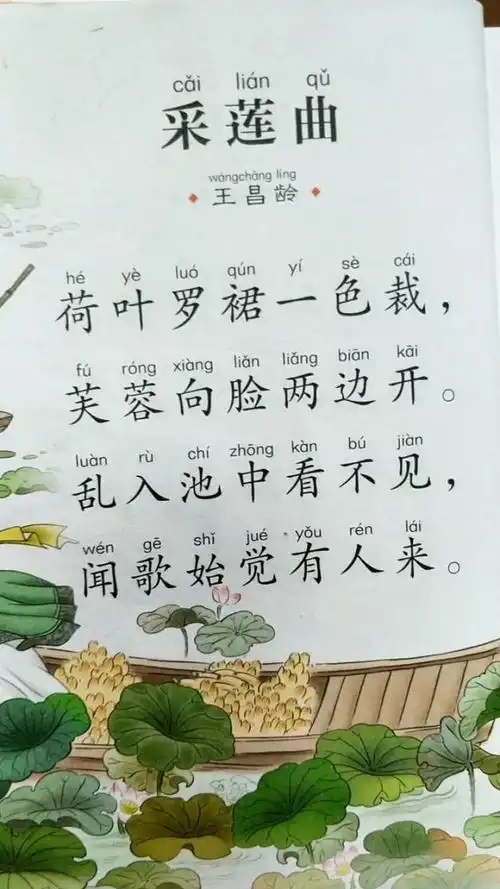 cǎi lián qǔ
采莲曲
wángchāng líng
王昌龄
hé yè luó qún yí sè cái
荷叶罗裙一色裁，
fú róng xiàng liǎn liǎng biān kāi
芙蓉向脸两边开。
luàn rù chí zhōng kàn bú jiàn
乱入池中看不见，
wén gē shǐ jué yǒu rén lái
闻歌始觉有人来。